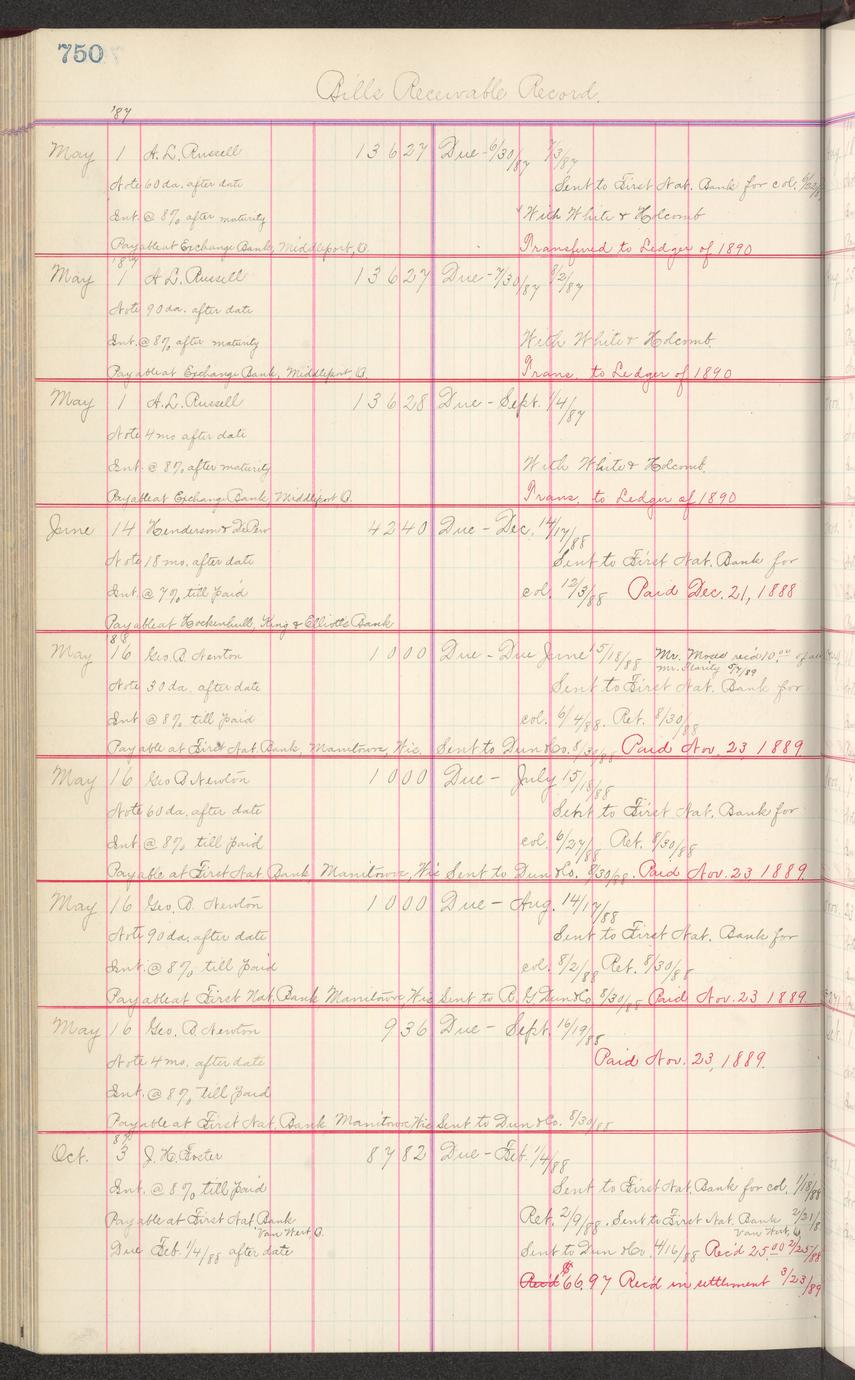 750
Bills Receivable Record.
'87
May 1 A. L. Russell 136 27 Due - 6/30/87 7/3/87
Note 60 da. after date Sent to First Nat. Bank for col.
Int. @ 8% after maturity With White & Holcomb
Payable at Exchange Bank, Middleport, O. Transferred to Ledger of 1890
'87
May 1 A. L. Russell 136 27 Due - 7/30/87 8/2/87
Note 90 da. after date
Int. @ 8% after maturity With White & Holcomb.
Payable at Exchange Bank, Middleport O. Trans. to Ledger of 1890
May 1 A. L. Russell 136 28 Due - Sept. 1/4/87
Note 4 mo after date
Int. @ 8% after maturity With White & Holcomb.
Payable at Exchange Bank, Middleport O. Trans. to Ledger of 1890
June 14 Henderson & DePew 42 40 Due - Dec. 14/17/88
Note 18 mo. after date Sent to First Nat. Bank for
Int. @ 7% till paid col. 12/3/88 Paid Dec. 21, 1888
Payable at Hockenhull, King & Elliotts Bank
88
May 16 Geo. B. Newton 10 00 Due - Due June 15/18/88 Mr. Moses rec'd 10.00 of
Mr. 5/7/89
Note 30 da. after date Sent to First Nat. Bank for
Int @ 8% till paid col. 6/4/88. Ret. 8/30/88
Payable at First Nat. Bank, Manitowoc, Wis. Sent to Dun & Co. 8/30/88 Paid Nov. 23 1889
May 16 Geo B Newton 10 00 Due - July 15/18/88
Note 60 da. after date Sent to First Nat. Bank for
Int @ 8% till paid col. 6/27/88 Ret. 8/30/88
Payable at First Nat Bank, Manitowoc, Wis Sent to Dun & Co. 8/30/88. Paid Nov. 23 1889.
May 16 Geo. B. Newton 10 00 Due - Aug. 14/17/88
Note 90 da. after date Sent to First Nat. Bank for
Int. @ 8% till paid col. 8/2/88 Ret. 8/30/88
Payable at First Nat. Bank Manitowoc Wis Sent to R. G. Dun & Co. 8/30/88 Paid Nov. 23 1889
May 16 Geo. B Newton 9 36 Due - Sept. 16/19/88
Note 4 mo. after date Paid Nov. 23, 1889.
Int. @ 8% till paid
Payable at First Nat. Bank Manitowoc Wis Sent to Dun & Co. 8/30/88
87
Oct. 3 J. H. Foster 87 82 Due - Feb. 1/4/88
Int. @ 8% till paid Sent to First Nat. Bank for col. 1/18/88
Payable at First Nat. Bank Ret. 2/9/88. Sent to First Nat. Bank 2/21/8
Van Wert, O. Van Wert, O.
Due Feb. 1/4/88 after date Sent to Dun & Co. 4/16/88 Rec'd 25.00 2/25/88
Rec'd $66.97 Rec'd in settlement 3/23/89